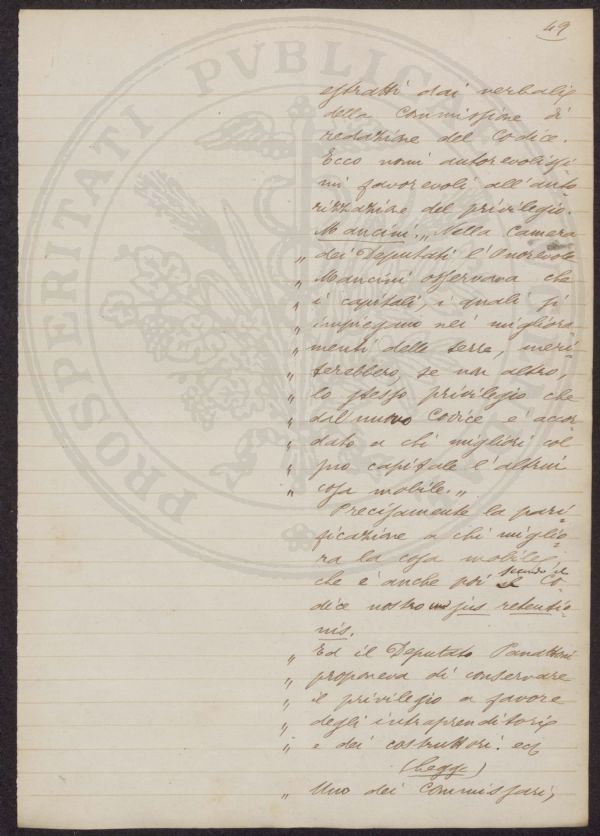 49
estratti dai verbali
della Commissione di
redazione del Codice.
Ecco nomi autorevolissi
mi favorevoli all'auto
rizzazione del privilegio.
Mancini. „ Nella Camera
„ dei Deputati l'Onorevole
„ Mancini osservava che
„ i capitali, i quali si
„ impiegano nei migliora-
„ menti delle terre, meri-
„ terebbero, se non altro,
„ lo stesso privilegio che
„ dal nuovo Codice è accor
„ dato a chi migliori col
„ suo capitale l'altrui
„ cosa mobile. „
Precisamente la pari-
ficazione a chi miglio-
ra la cosa mobile,
che è anche poi secondo il Co-
dice nostro un jus retentio-
nis.
„ Ed il Deputato Panattoni
„ proponeva di conservare
„ il privilegio a favore
„ degli intraprenditori
„ e dei costruttori. ecc
(Legge)
„ Uno dei Commissari,
PROSPERITATI PVBLICAE